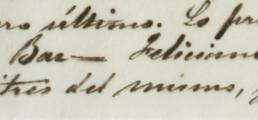 ro último. Lo pr
Bar— Feliciano
itres del mismo,